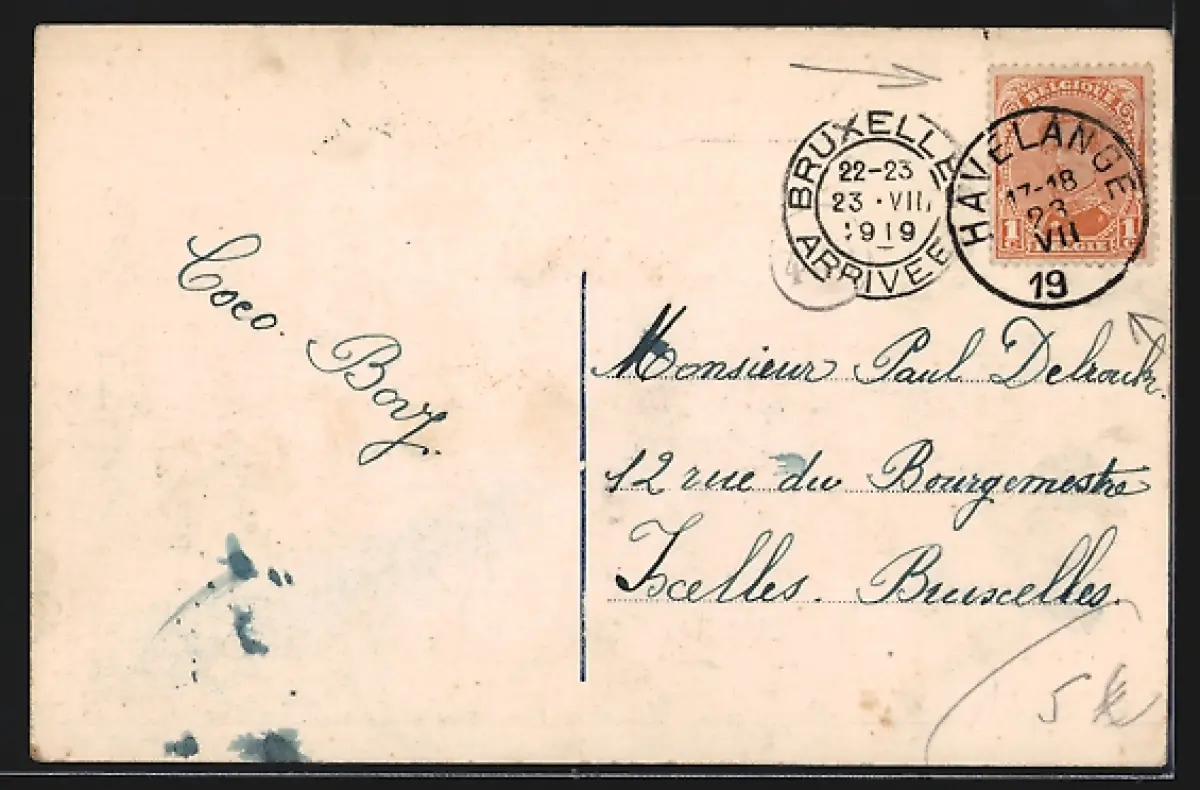 BELGIQUE
BRUXELLE
22-23
23 · VII
1919
ARRIVEE
HAVELANGE
17-18
23
VII
19
1 BELGIE 1
Coco. Bovy.
Monsieur Paul
12 rue du Bourgemestre
Ixelles. Bruxelles.
5